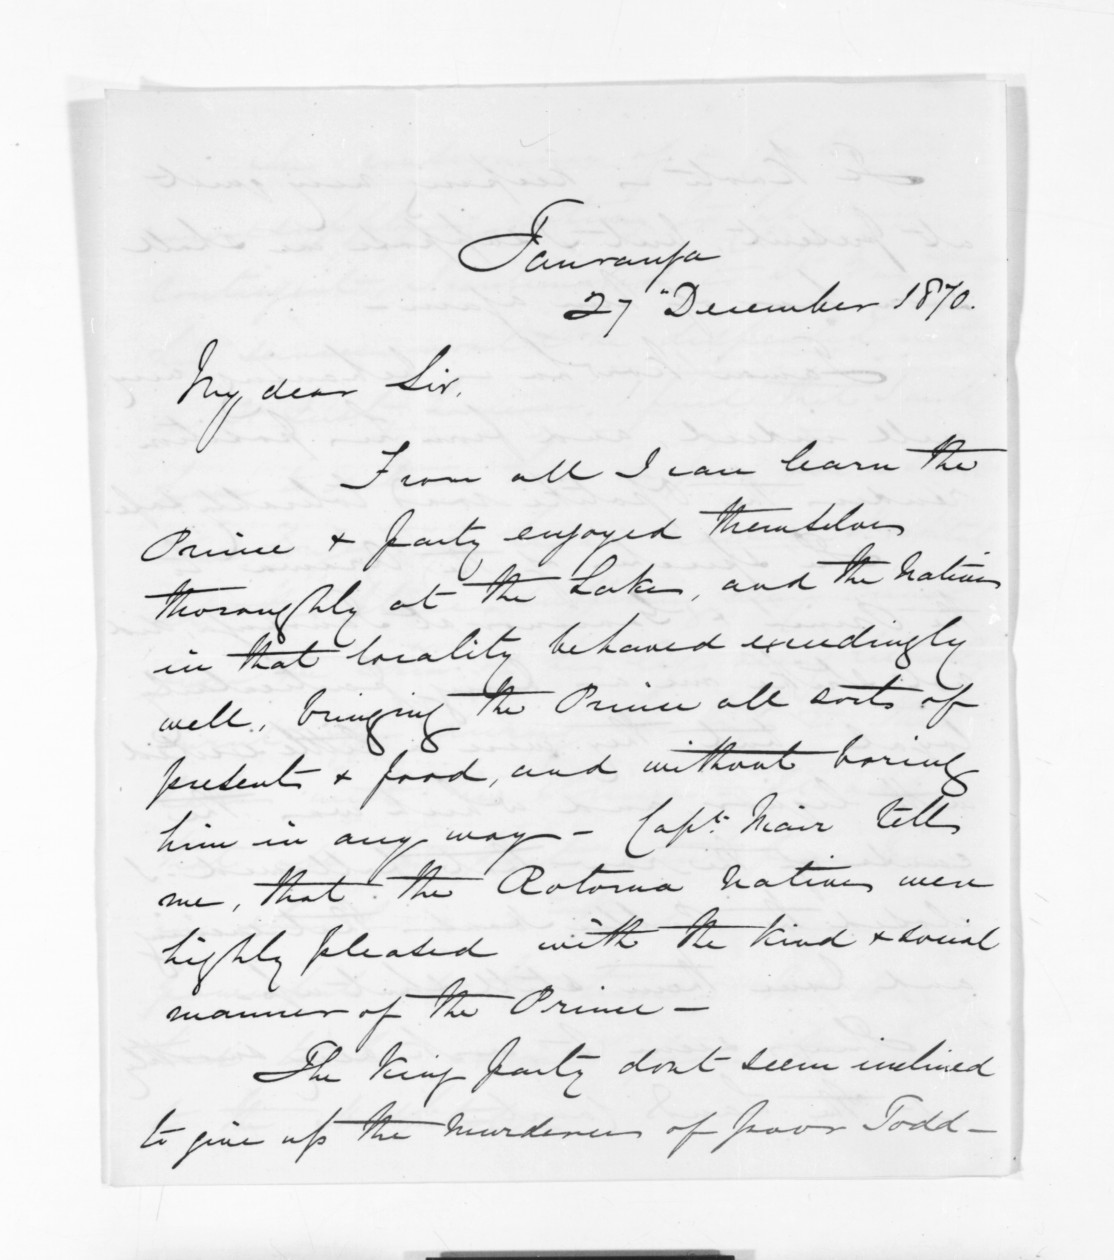 Tauranga
27" December 1870.
My dear Sir,
From all I can learn the
Prince & party enjoyed themselves
thoroughly at the Lakes, and the Natives
in that locality behaved exceedingly
well, bringing the Prince all sorts of
presents & food, and without boring
him in any way - Capt. Mair tells
me, that the Rotorua Natives were
highly pleased with the kind & social
manner of the Prince -
The King party dont seem inclined
to give up the murderers of poor Todd -